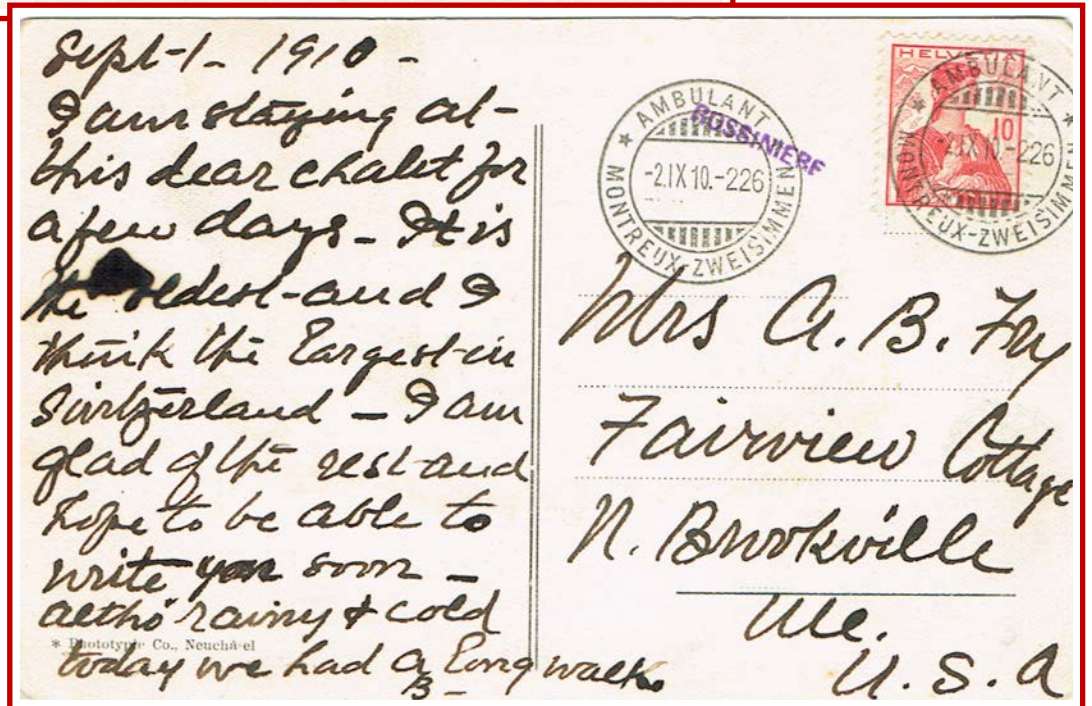 Sept-1- 1910 -
I am staying at-
this dear chalet for
a few days - It is
the oldest-and I
think the largest-in
Switzerland - I am
glad of the rest-and
hope to be able to
write you soon -
altho' rainy & cold
today we had a long walk.
B-
* Phototypie Co., Neuchâtel
* AMBULANT *
MONTREUX-ZWEISIMMEN
-2.IX 10.-226
ROSSINIERE
HELVETIA
10
* AMBULANT *
MONTREUX-ZWEISIMMEN
-2.IX 10.-226
Mrs A. B. Fry
Fairview Cottage
N. Brookville
Me.
U. S. A